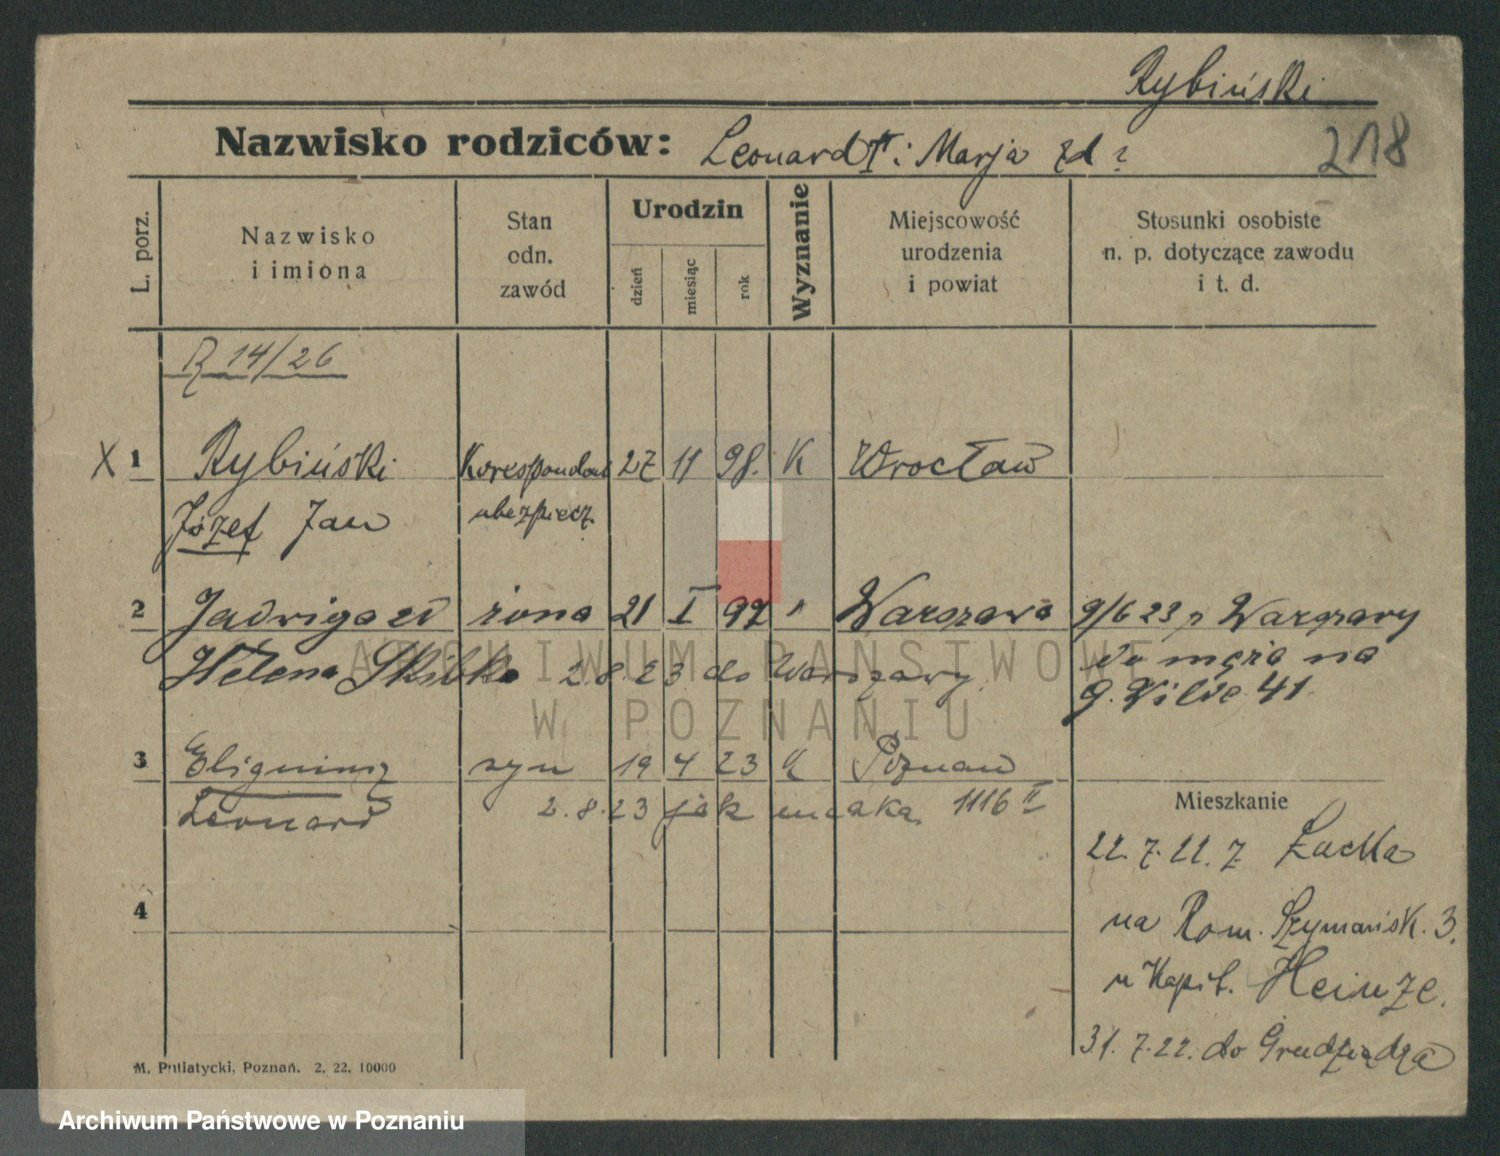 Rybiński
Nazwisko rodziców: Leonard † i Marja zd ?
218
L. porz.
Nazwisko i imiona
Stan odn. zawód
Urodzin
dzień miesiąc rok
Wyznanie
Miejscowość urodzenia i powiat
Stosunki osobiste n. p. dotyczące zawodu i t. d.
R 14/26
X 1 Rybiński Korespondent 27 11 98. K Wrocław
Józef Jan ubezpiecz.
2 Jadwiga zd żona 21 I 97 " Warszawa 9/6 23 z Warszawy
Helena Skibka 2.8.23 do Warszawy do męża na
G. Wilde 41
3 syn 19 4 23 K Poznań
Leonard 2.8.23 jak matka. 1116 II
Mieszkanie
22. 7. 22. z Łucka
4
na Rom. Szymańsk. 3.
u Kapit. Heinze.
31. 7. 22. do Grudziądza
M. Putiatycki, Poznań. 2. 22. 10000
ARCHIWUM PAŃSTWOWE
W POZNANIU
Archiwum Państwowe w Poznaniu